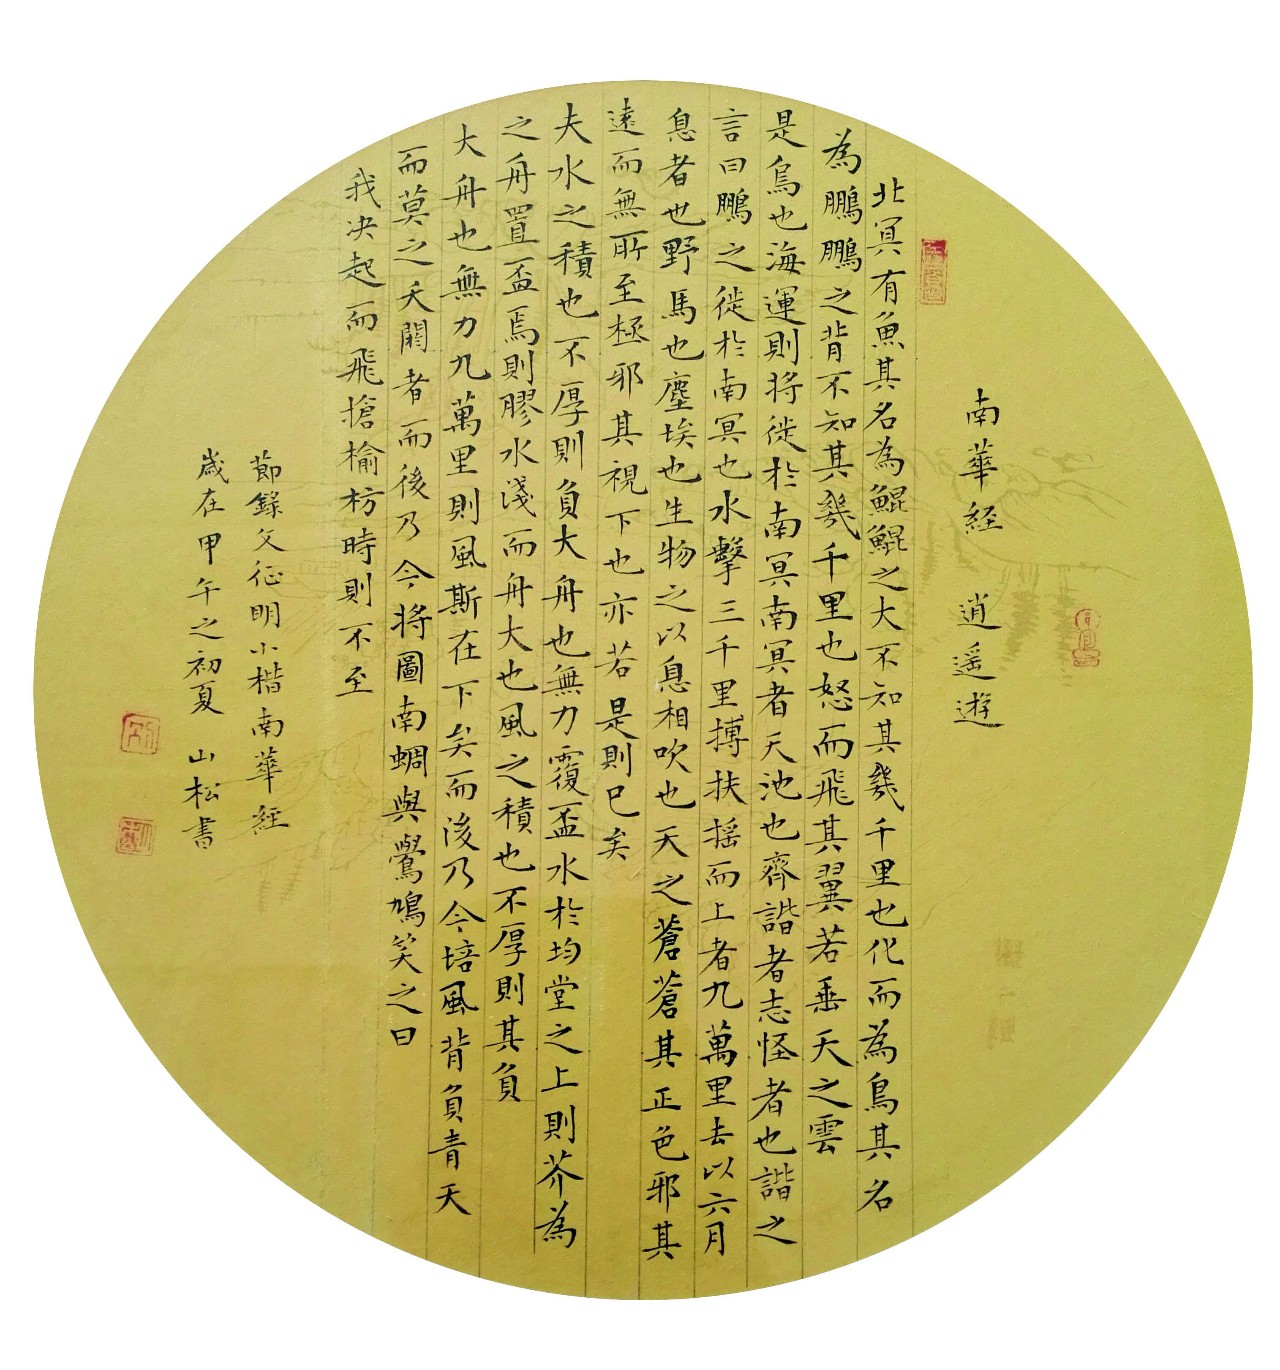 南華经 逍遥遊
北冥有魚其名為鯤鯤之大不知其幾千里也化而為鳥其名
為鵬鵬之背不知其幾千里也怒而飛其翼若垂天之雲
是鳥也海運則将徙於南冥南冥者天池也齊諧者志怪者也諧之
言曰鵬之徙於南冥也水擊三千里搏扶摇而上者九萬里去以六月
息者也野馬也塵埃也生物之以息相吹也天之蒼蒼其正色邪其
遠而無所至極邪其視下也亦若是則已矣
夫水之積也不厚則負大舟也無力覆盃水於坳堂之上則芥為
之舟置盃焉則膠水淺而舟大也風之積也不厚則其負
大舟也無力九萬里則風斯在下矣而後乃今培風背負青天
而莫之夭閼者而後乃今将圖南蜩與鷽鳩笑之曰
我决起而飛搶榆枋時則不至
節錄文征明小楷南華經
歲在甲午之初夏 山松書